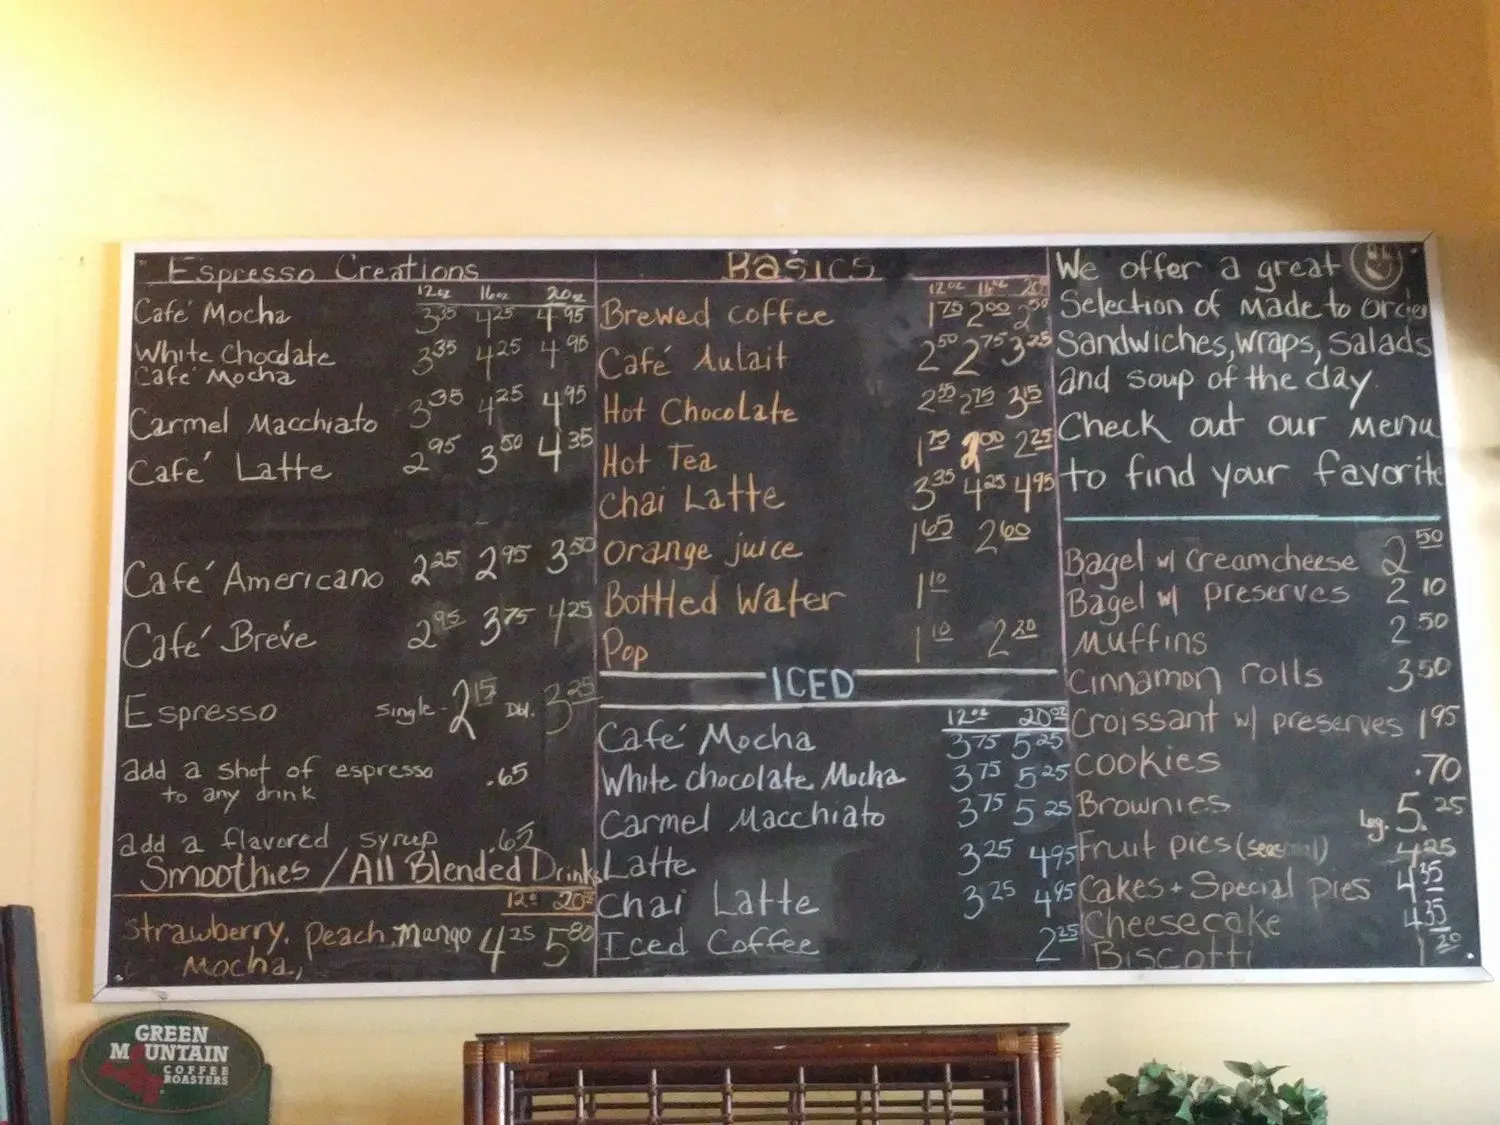 Espresso Creations
12oz 16oz 20oz
Café Mocha 3.35 4.25 4.95
White Chocolate 3.35 4.25 4.95
Café Mocha
Carmel Macchiato 3.35 4.25 4.95
Café Latte 2.95 3.50 4.35
Café Americano 2.25 2.95 3.50
Café Breve 2.95 3.75 4.25
Espresso Single - 2.15 Dbl. 3.25
add a shot of espresso .65
to any drink
add a flavored syrup .65
Smoothies / All Blended Drinks
12oz 20oz
Strawberry, peach, Mango 4.25 5.80
Mocha,
Basics
12oz 16oz 20oz
Brewed coffee 1.75 2.00 2.50
Café Aulait 2.50 2.75 3.25
Hot Chocolate 2.35 2.75 3.15
Hot Tea 1.75 2.00 2.25
Chai Latte 3.35 4.25 4.95
Orange juice 1.65 2.60
Bottled Water 1.10
Pop 1.10 2.20
ICED
12oz 20oz
Café Mocha 3.75 5.25
White chocolate Mocha 3.75 5.25
Carmel Macchiato 3.75 5.25
Latte 3.25 4.95
Chai Latte 3.25 4.95
Iced Coffee 2.25
We offer a great
Selection of Made to Order
Sandwiches, Wraps, Salads
and soup of the day.
Check out our Menu
to find your favorite
Bagel w/ creamcheese 2.50
Bagel w/ preserves 2.10
Muffins 2.50
Cinnamon rolls 3.50
Croissant w/ preserves 1.95
Cookies .70
Brownies Lg. 5.25
Fruit pies (seasonal) 4.25
Cakes + Special pies 4.35
Cheesecake 4.35
Biscotti 1.20
GREEN
MOUNTAIN
COFFEE
ROASTERS